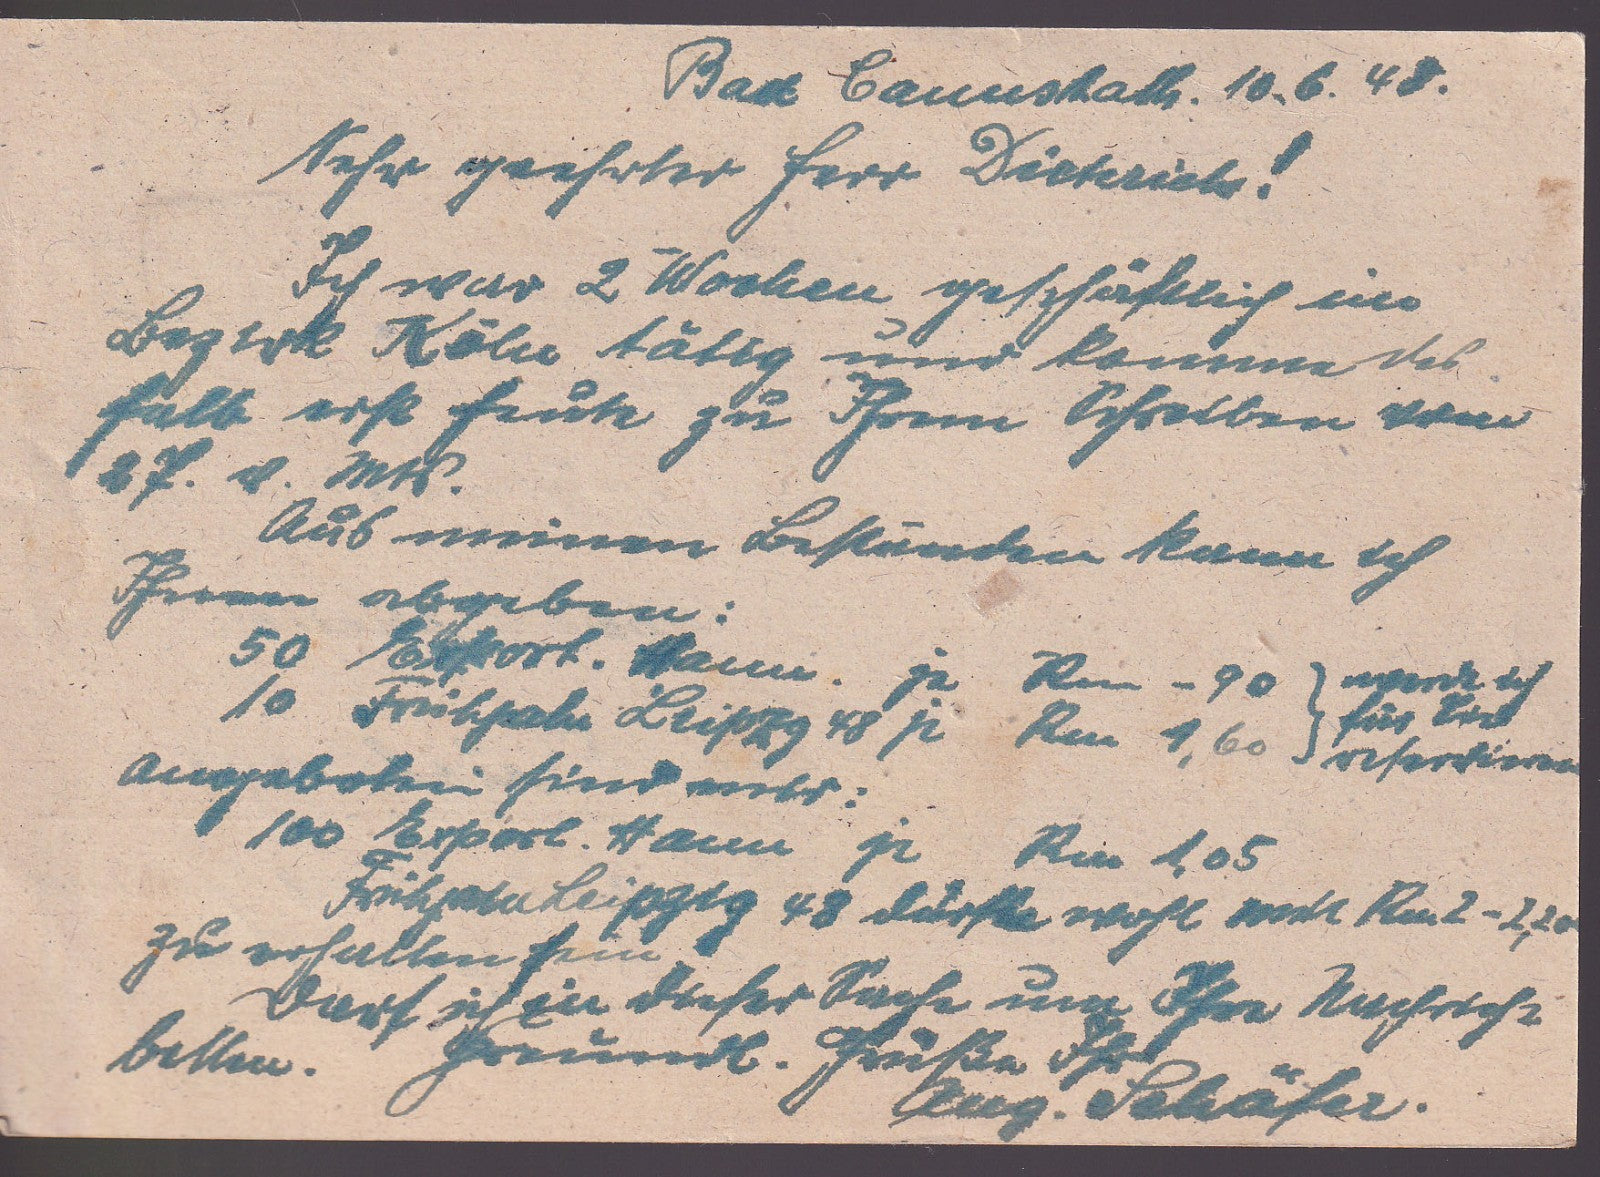 Bad Cannstatt. 10.6.48.
Sehr geehrter Herr Dietrich!
Ich war 2 Wochen geschäftlich im
Bezirk Köln tätig und komme des
halb erst heute zu Ihrem Schreiben vom
27. v. Mts.
Aus meinen Beständen kann ich
Ihnen abgeben:
50 Export. Hann. je Rm -90 } werde ich
10 Frühjahr Leipzig 48 je Rm 1,60 } für Sie
reservieren
Angeboten sind mir:
100 Export. Hann je Rm 1,05
Frühjahr Leipzig 48 dürfte wohl mit Rm 2-2,20
zu erhalten sein
Darf ich in dieser Sache um Ihre Nachricht
bitten. Freundl. Grüße Ihr
Aug. Schäfer.